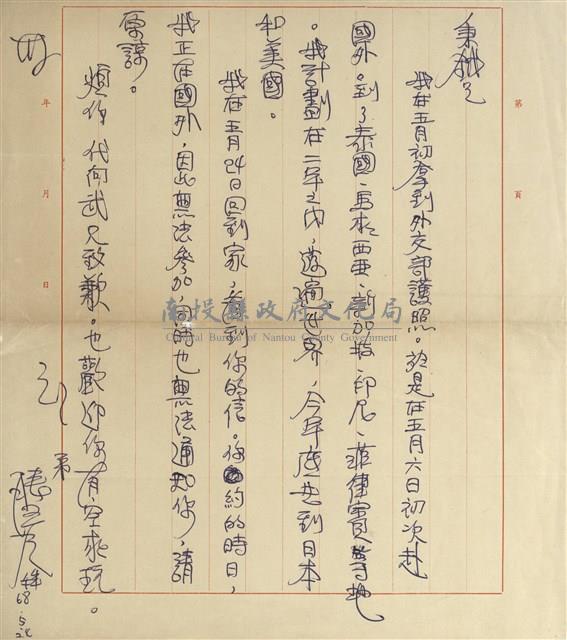 第 頁
我在五月初拿到外交部護照。於是在五月六日初次赴
國外。到了泰國、馬來西亞、新加坡、印尼、菲律賓等地
。我計劃在二年之內,遊遍世界,今年底再到日本
和美國。
我在五月24日回到家,看到你的信。你約的時日,
我正在國外,因此無法參加,同時也無法通知你,請
原諒。
煩你代向武兄致歉。也歡迎你有空來玩。
弟
68.5.
年 月 日
南投縣政府文化局
Cultural Bureau of Nantou County Government